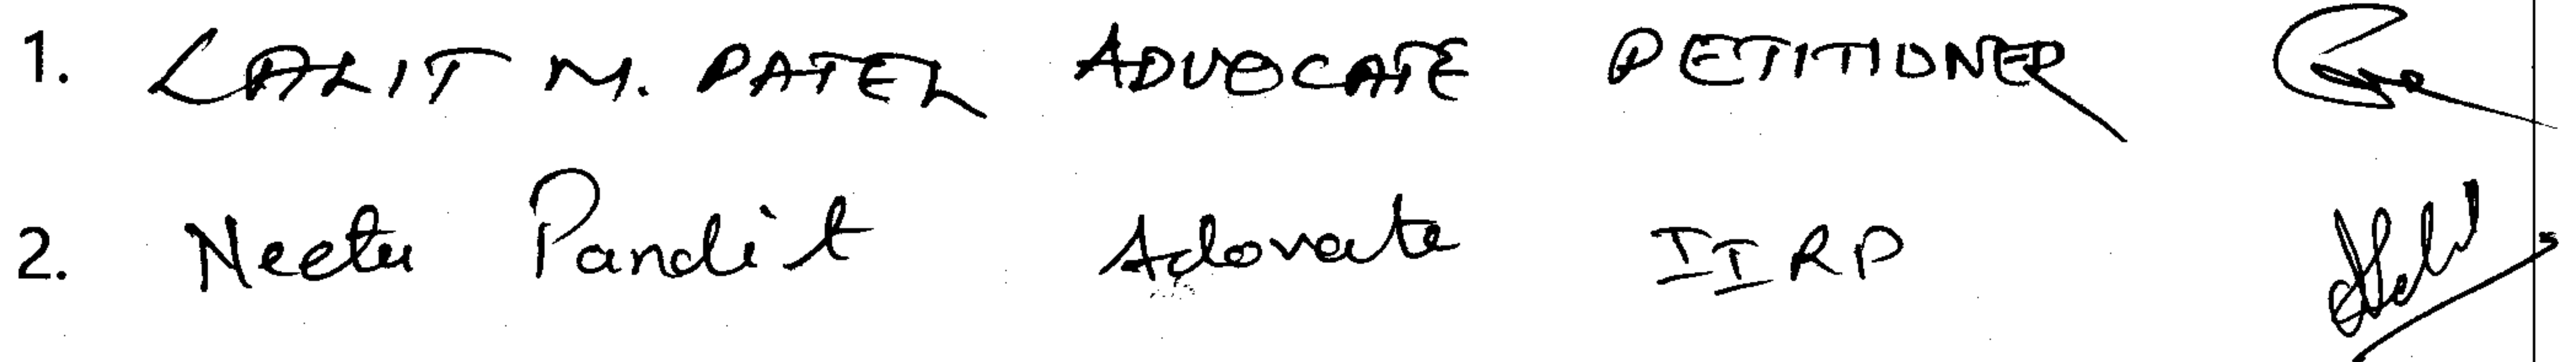 1. LALIT M. PATEL ADVOCATE PETITIONER
2. Neetu Pandit Adovate IIRP